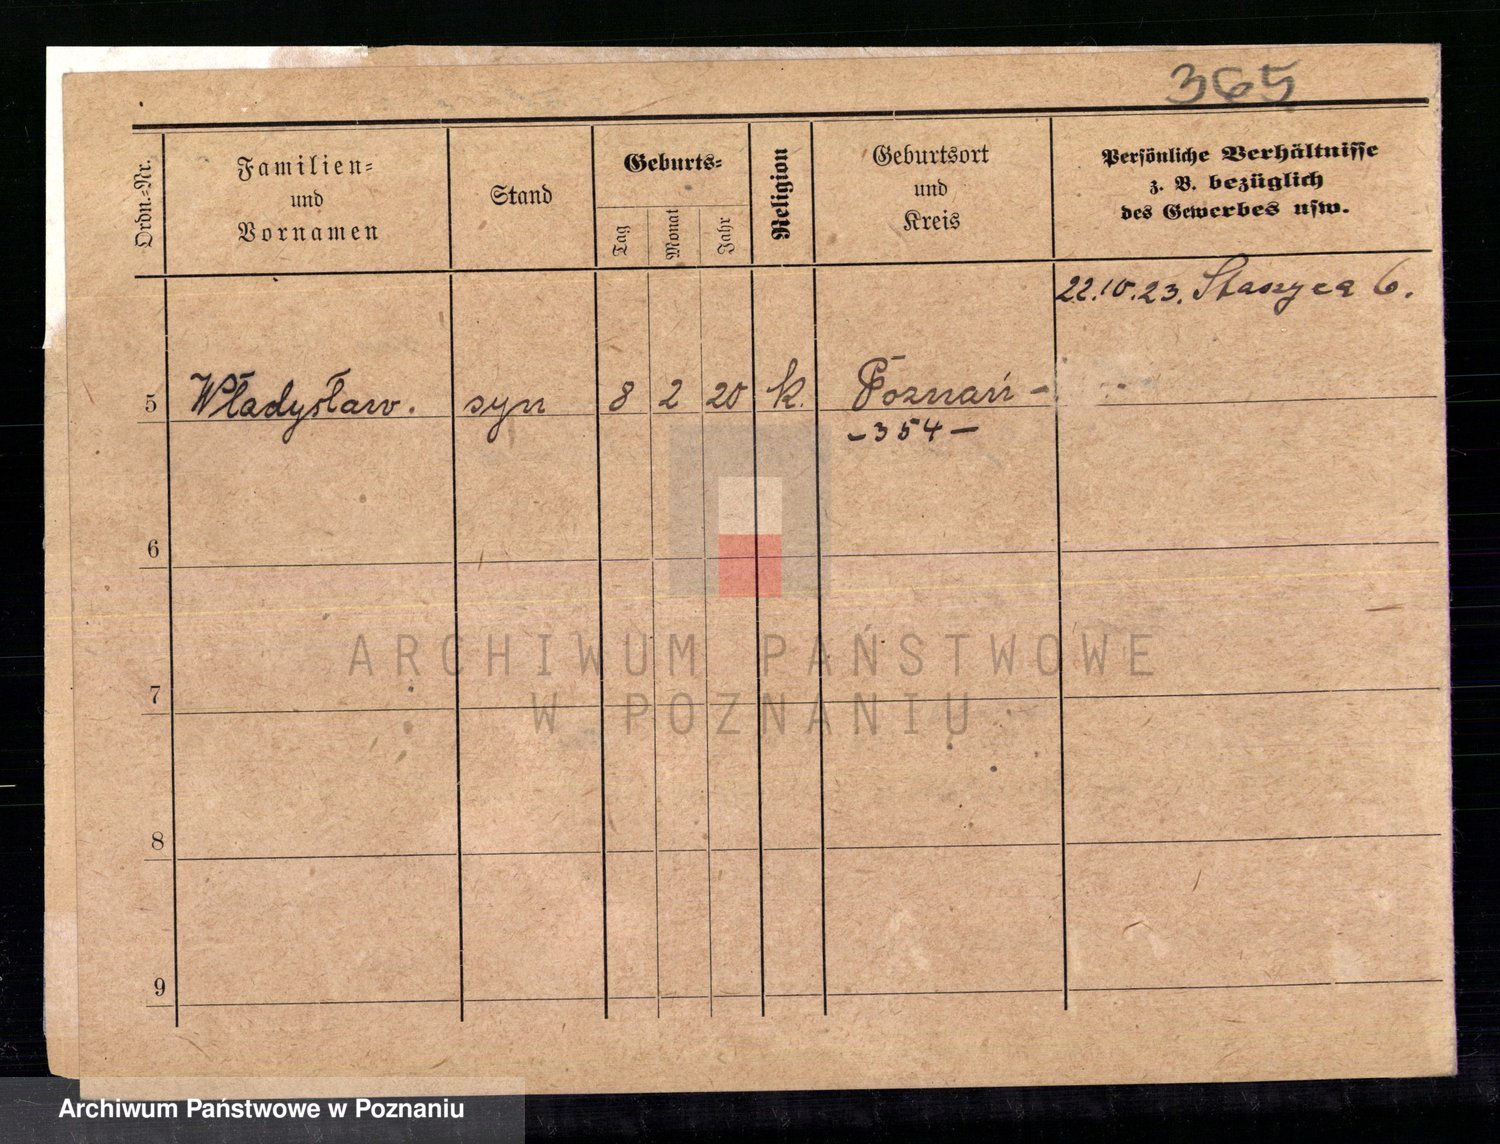 365
Ordn.-Nr.
Familien-
und
Vornamen
Stand
Geburts-
Tag
Monat
Jahr
Religion
Geburtsort
und
Kreis
Persönliche Verhältnisse
z. B. bezüglich
des Gewerbes usw.
22.10.23. Staszyca 6.
5 Władysław. syn 8 2 20 k. Poznań -
- 354 -
6
7
8
9
ARCHIWUM PAŃSTWOWE
W POZNANIU
Archiwum Państwowe w Poznaniu